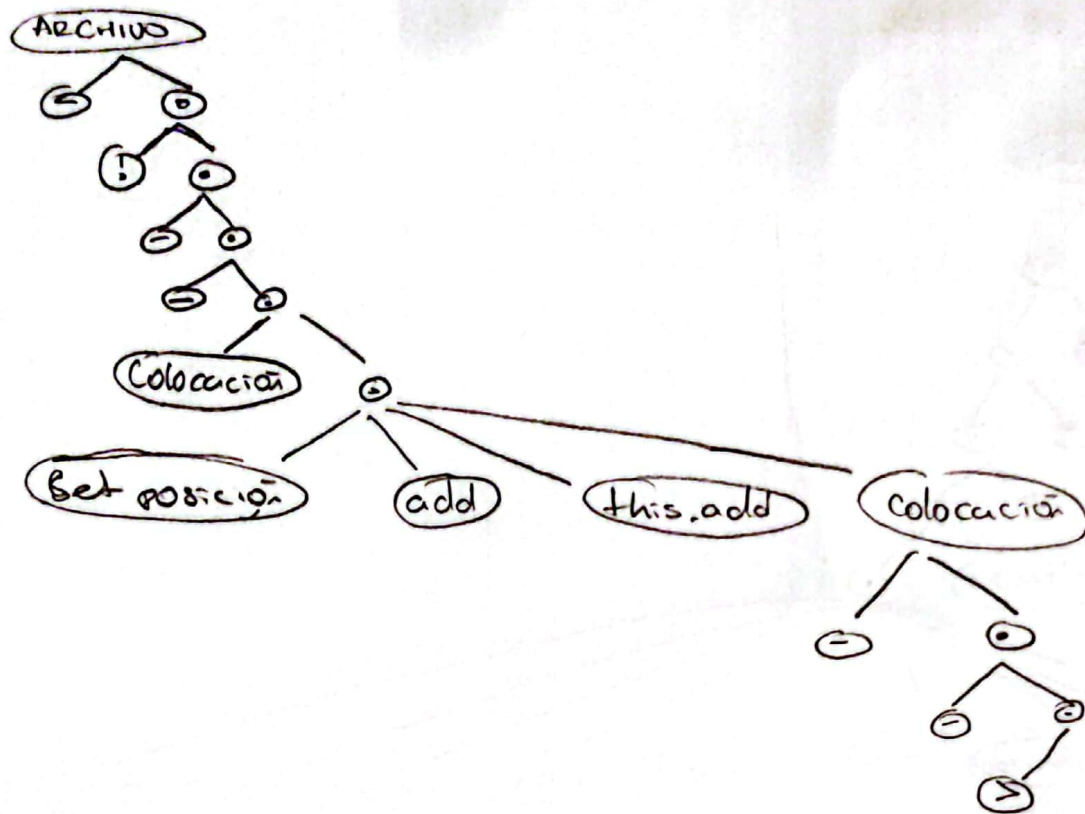 ARCHIVO
<
!
-
-
Colocación
Set posición add this.add Colocación
-
-
>